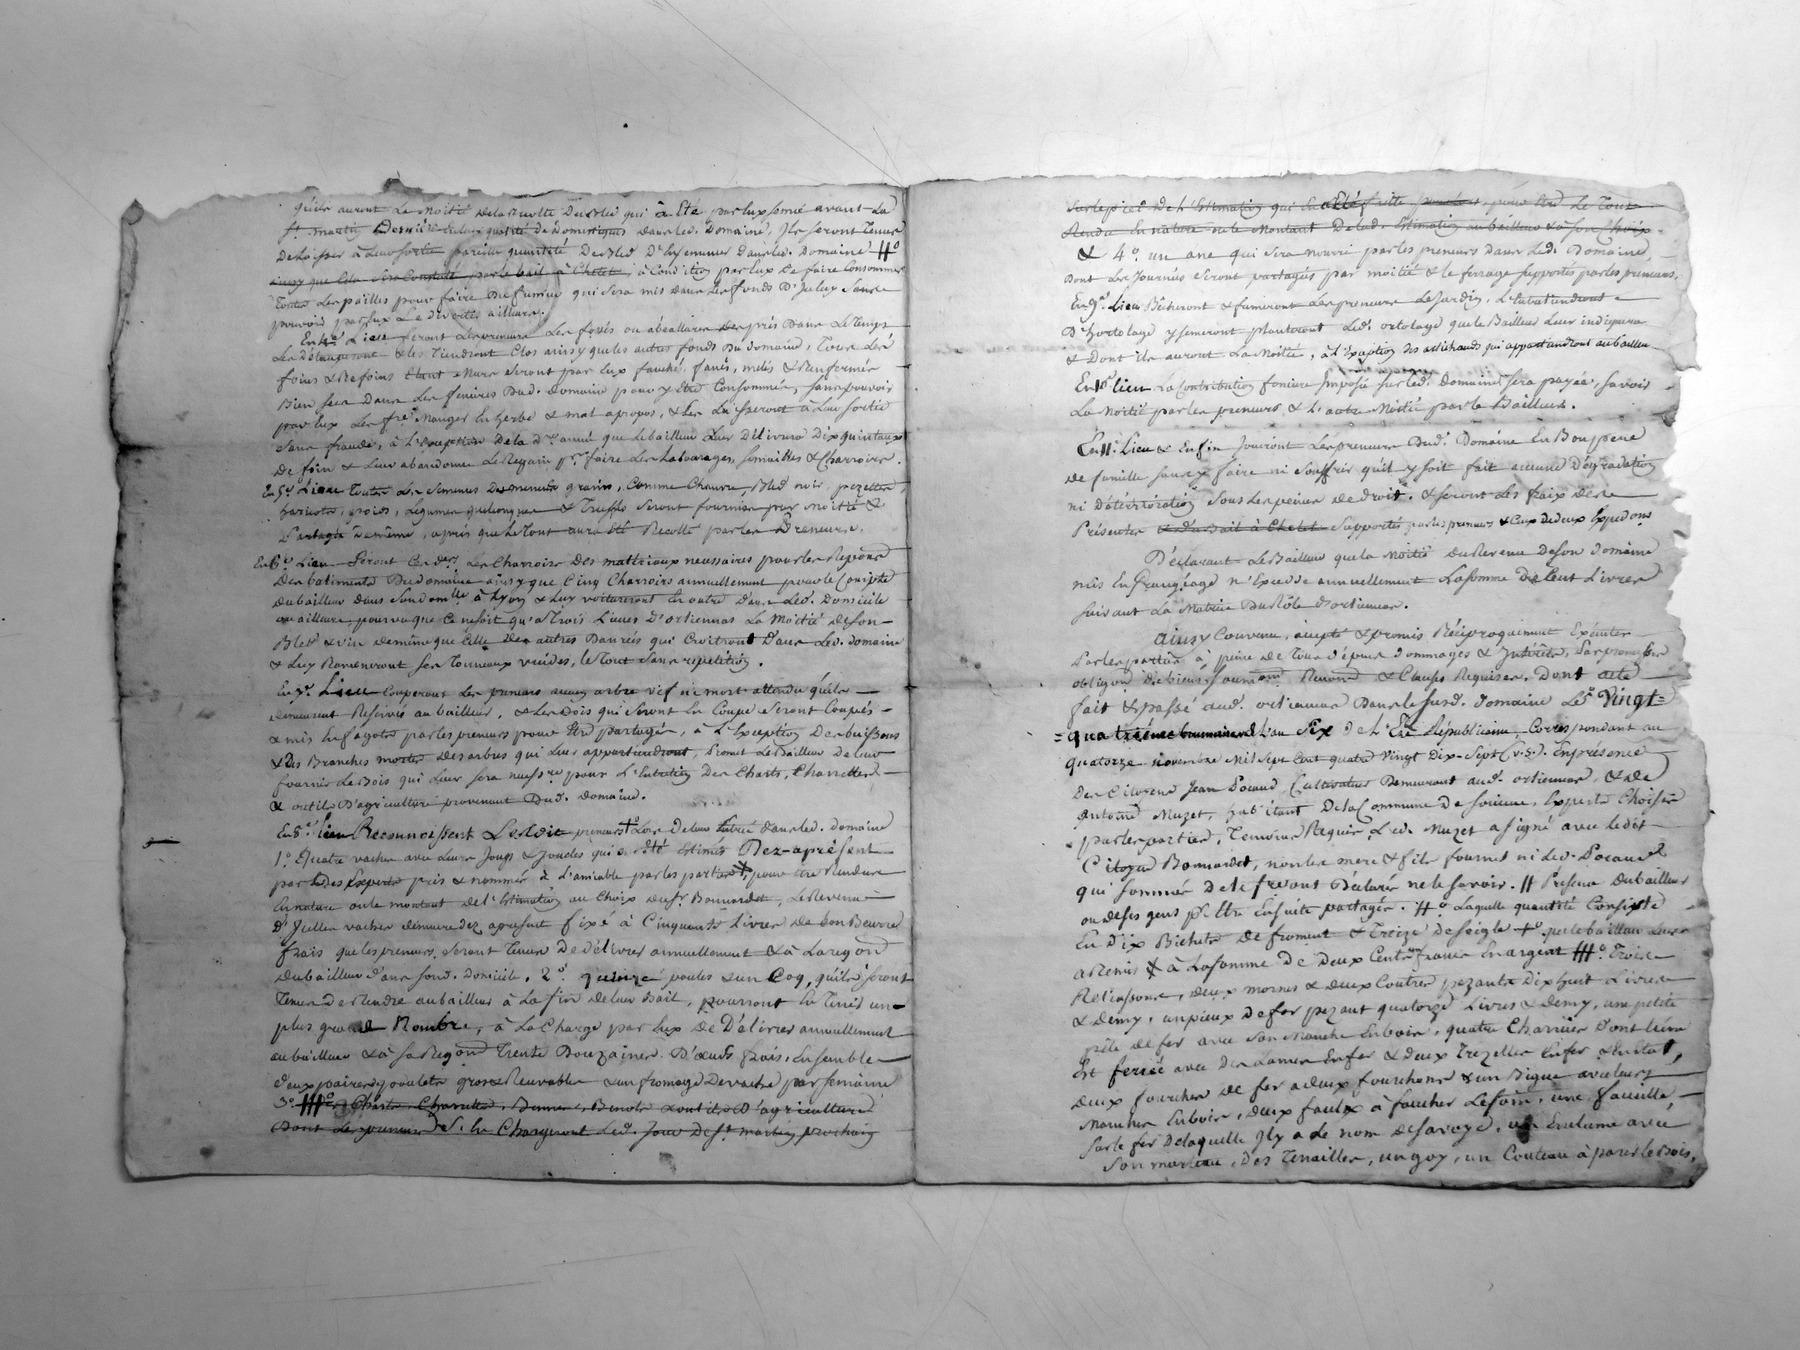 qu'ils auront la moitié de la recolte du bled qui a été par eux semé avant la
St. martin
de laisser à leur sortie pareille quantité de bled d'hy ensemencé dans led. Domaine #°
ainsy que cela sera Constaté par le bail à Chetel, à Condition par eux de faire Consommer
Toutes les pailles pour faire du fumier qui sera mis dans les fonds d'iceluy sans
pouvoir par eux le divertir ailleurs.
En 4e. Lieu feront les preneurs les fossés ou abéallures des prés dans le Temps
& les Tiendront Clos ainsy que les autres fonds du domaine, Tous les
foins & Refoins seront par eux fauché, fanés, & Renfermés
Bien secs Dans les fenières Dud. domaine pour y être Consommés, sans pouvoir
par eux les fre. Manger En herbe & mal apropos, & les Laisseront à leur sortie
sans fraude, à l'exception de la dre. année que le bailleur leur délivrera Dix quintaux
de foin & leur abandonne le Regain pr. faire les Labourages, semailles & Charrois.
En 5e. Lieu Toutes les semences de menus grains, Comme Chanvre, Bled noir, pezettes,
haricots, pois, Légumes quelconques & Truffes seront fournies par moitié &
Partagé de même, après que le Tout aura été Recolté par les Preneurs.
En 6e. Lieu feront les Charrois des matériaux necessaires pour les Repons
des batiments Du domaine ainsy que Cinq Charrois annuellement pour le Compte
du bailleur dans son domlle à Lyon & luy voitureront En outre dans led. Domicile
ou ailleurs, pourvu que Ce ne soit qu'à Trois Lieues D'ortiennas La Moitié de son
Bled & vin de même que Celle des autres Danrées qui Croitront Dans led. domaine
& luy Rameneront ses Tonneaux vuides, le Tout sans repetition.
En 7e. Lieu Couperont les preneurs aucun arbre vif ni mort attendu qu'ils
demeurent Reservés au bailleur, & les Bois qui seront En Coupe seront Coupés
& mis En fagots par les preneurs pour Etre partagés, à l'Exception des buissons
& des Branches mortes des arbres qui leur appartiendront, Promet le Bailleur de leur
fournir le Bois qui leur sera necessre pour l'Entretien Des Charts, Charrettes
& outils D'agriculture provenant Dud. Domaine.
En 8e. lieu Reconnoissent Lesdits preneurs +° Lors de leur Entrée dans led. Domaine
1°. Quatre vaches avec leurs Jougs & Joucles qui ont été Estimés Dez-apresent
par des Experts pris & nommés à l'amiable par les parties, pour être Rendues
En nature ou le montant de l'Estimation au Choix du Sr. Bonnardet, le Revenu
d'Icelles vaches demeure dez apresent fixé à Cinquante Livres de Bon Beurre
frais que les preneurs seront Tenus de délivrer annuellement & à La reqon
du bailleur dans sond. Domicile, 2°. quinze poules & un Coq, qu'ils seront
Tenus de Rendre au bailleur à la fin de leur Bail, pourront En Tenir un
plus grand Nombre, à la Charge par Eux de Délivrer annuellement
au bailleur & à sa Reqon Trente Douzaines D'œufs frais, Ensemble
deux paires de poulets gros & Recevables & un fromage De vache par semaine
3°. ###°. Charts Charrettes, Bennes, Benots & outils D'agriculture
Dont les preneurs se Chargeront Led. Jour de St. martin prochain
Sur le pied de l'Estimation qui En a été faite pour Etre le Tout
Rendu En nature ou le Montant de lad. Estimation au bailleur & à son Choix
& 4°. un ane qui sera nourri par les preneurs dans led. Domaine,
dont les Journés seront partagés par moitié & le ferrage supportés par les preneurs.
En 9e. Lieu Bécheront & fumeront les preneurs le Jardin, l'Entretiendront
D'hortolage y semeront planteront led. ortolage que le Bailleur leur indiquera
& Dont ils auront La Moitié, à l'Exception des artichauds qui appartiendront au bailleur
En 10e. lieu La Contribution fonciere Imposé sur led. Domaine sera payée, savoir
La Moitié par les preneurs & l'autre Moitié par le Bailleur.
En 11e. Lieu & Enfin Jouiront Les preneurs Dud. Domaine En Bon pere
de famille sans y faire ni souffrir qu'il y soit fait aucune Dégradation
ni Détérioration sous les peines de droit, & seront les fraix des
Présentes & du Bail à Chetel Supportés par les preneurs & Ceux de deux Expedons
Déclarant le Bailleur que la Moitié du Revenu de son domaine
mis En Grangeage n'Excede annuellement La somme de Cent Livres
suivant La Matrice Du Rôle d'ortiennas.
Ainsy Convenu, accepté & promis Réciproquement Exécuter
par les parties à peine de Tous dépens dommages & Interets, par promesses
obligaons de biens, soumissons Renonc. & Clauses Requises, Dont acte
fait & passé aud. ortiennas Dans le susd. domaine Le Vingt=
=quatrième brumaire l'an Six de l'Ere Républicaine, Correspondant au
quatorze novembre Mil Sept Cent quatre Vingt Dix-Sept (v.s.). En présence
Des Citoyens Jean Pocaud, Cultivateur Demeurant aud. ortiennas, & de
Antoine Muzet, habitant De la Commune de Experts Choisis
par les parties, Temoins Requis, Led. Muzet a signé avec ledit
Citoyen Bonnardet, non les mere & fils fournel ni led. Pocaud
qui sommés de le fre ont Déclaré ne le savoir. // Preseur du bailleur
ou de ses gens pr. Etre Ensuite partagés. #° Laquelle quantité Consiste
En Dix Bichets de froment & Treize de seigle +° que le bailleur Leur
a Remis ‡ à La somme de Deux Cents francs En argent ###°. Trois
Retrassons, deux mornes & deux Coutres pezants Dix huit Livres
& Demy, un pieux de fer pezant quatorze Livres & Demy, une petite
pêle de fer avec son Manche En bois, quatre Charrues dont l'une
Est ferrée avec des Lames En fer & deux Trezelles En fer & En Etat,
deux fourches de fer a deux fourchons & un Bigue avec leurs
Manches En bois, deux faulx à faucher Le foin, une faucille,
sur le fer De laquelle Il y a Le nom de savoye, un Enclume avec
son marteau, Des Tenailles, un goy, un Couteau à parer le bois,